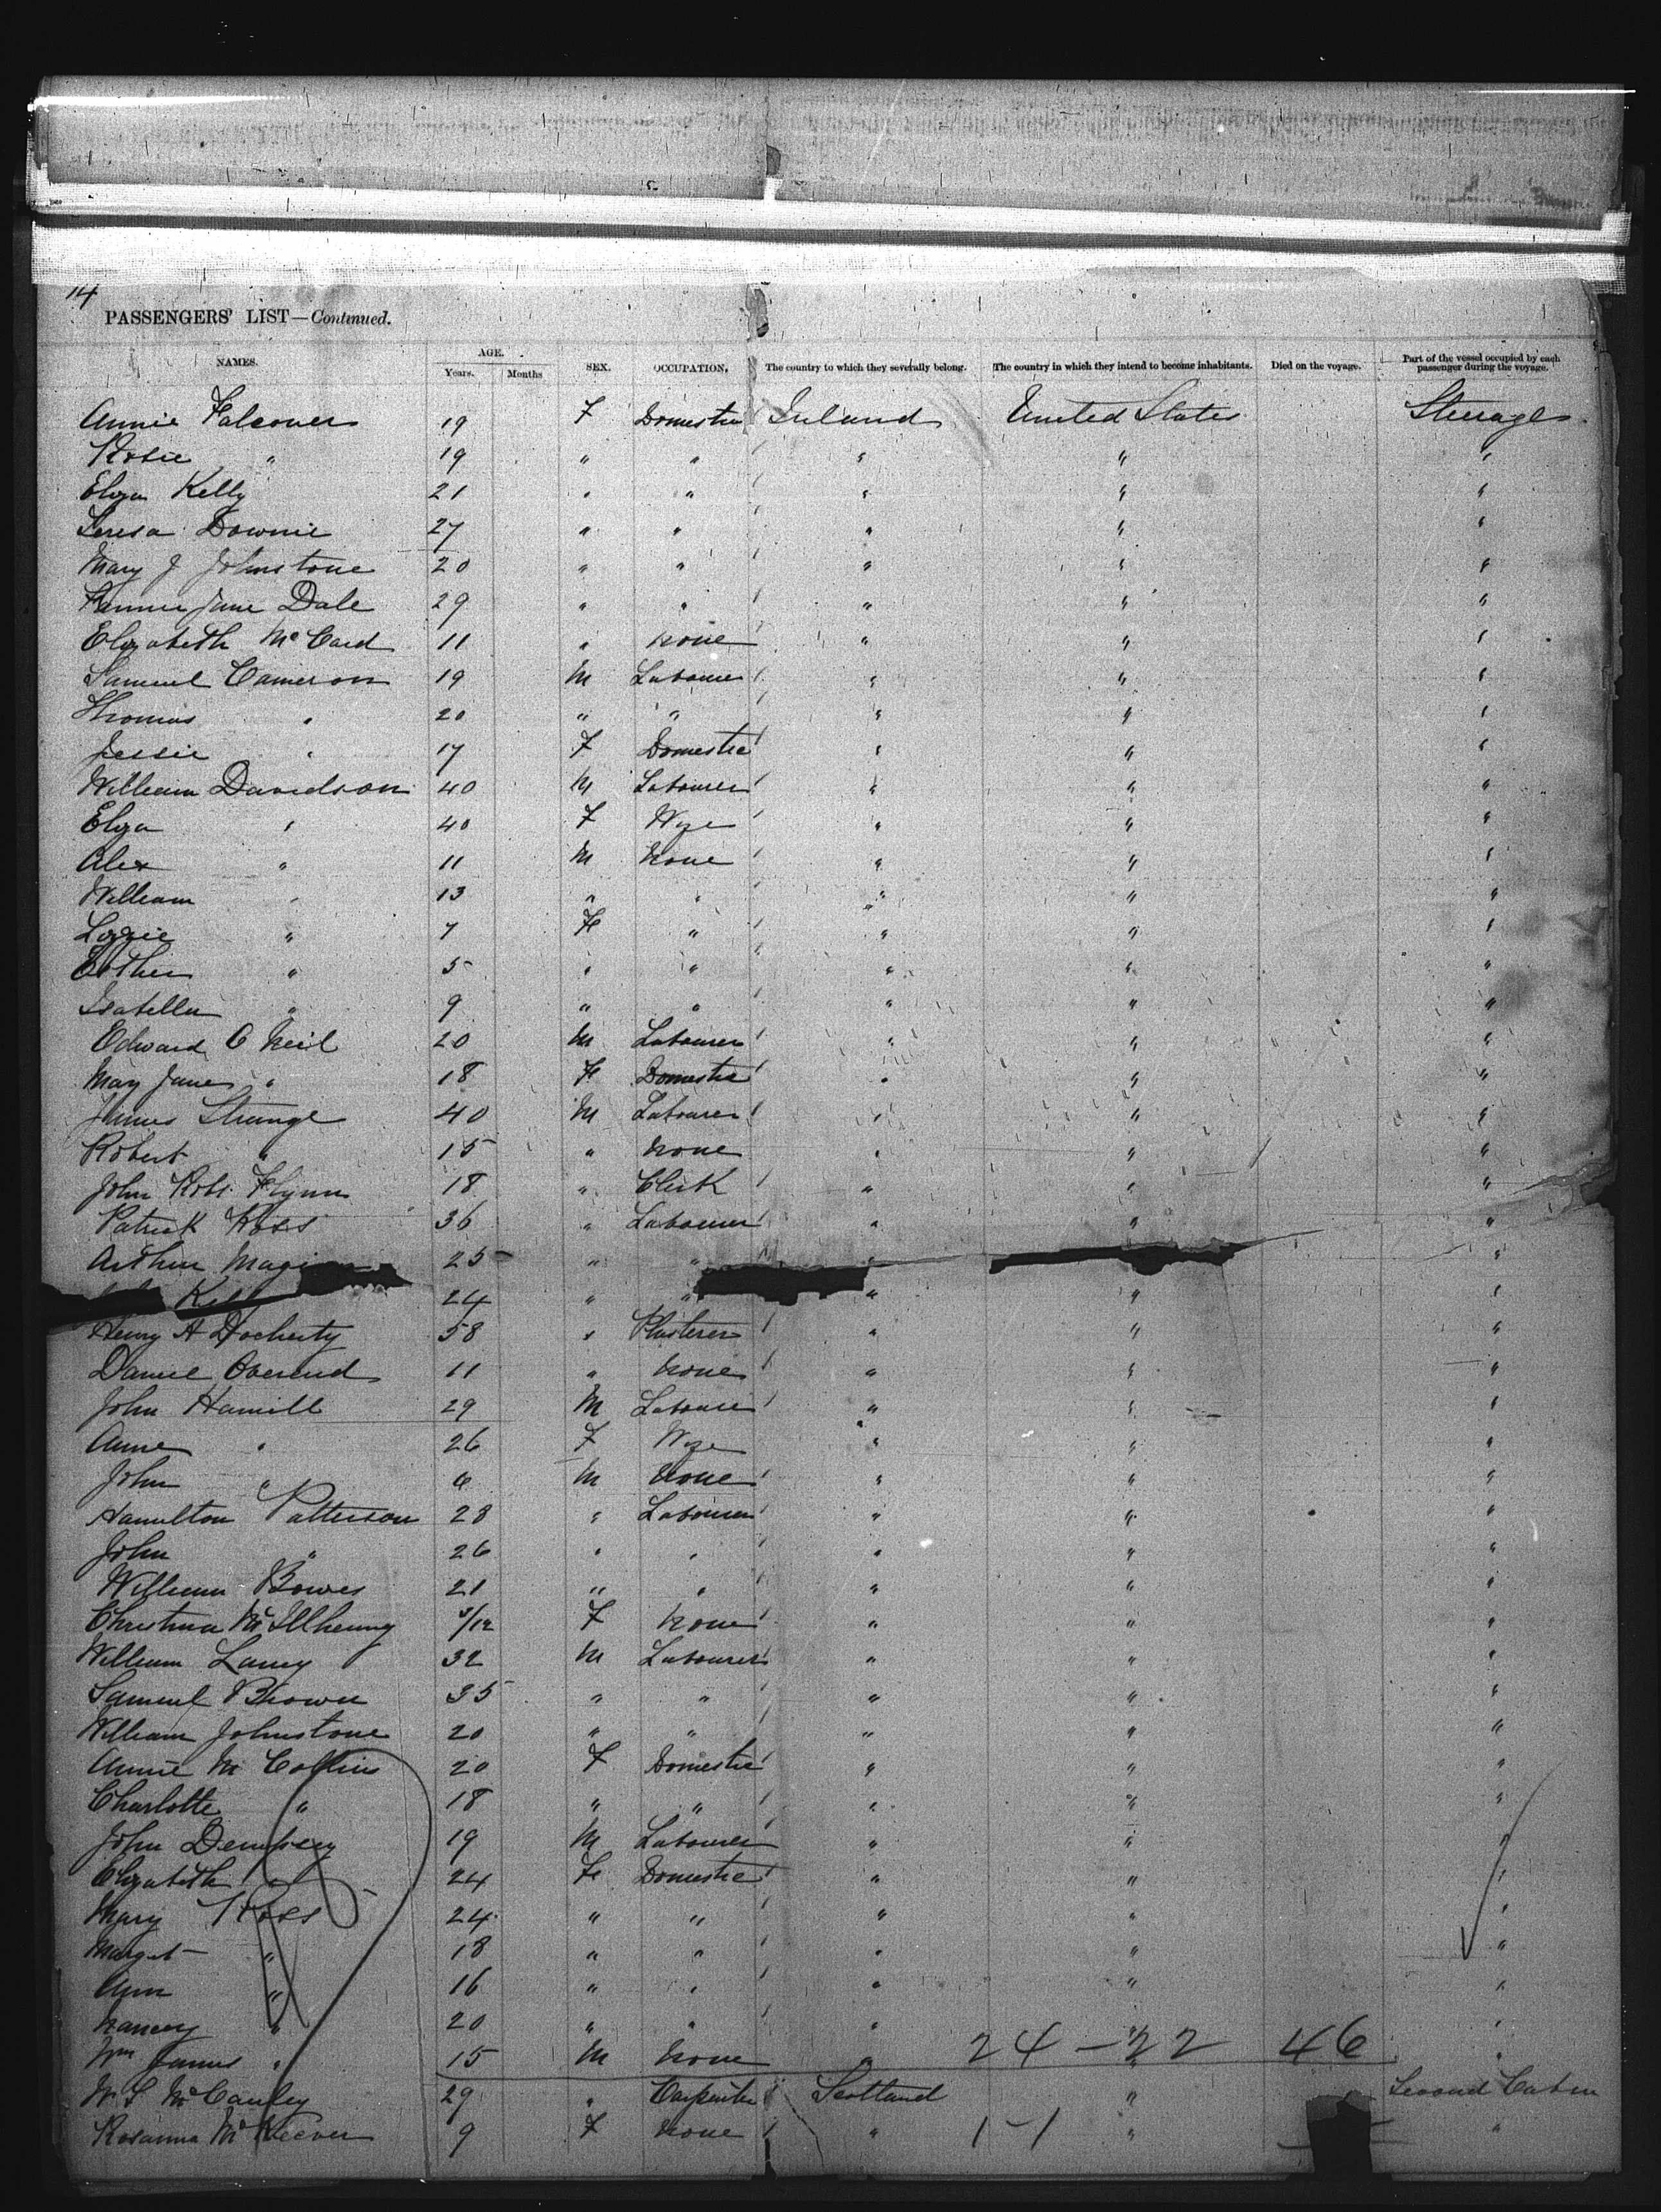 14
PASSENGERS' LIST—Continued.
NAMES. AGE. Years. Months SEX. OCCUPATION. The country to which they severally belong. The country in which they intend to become inhabitants. Died on the voyage. Part of the vessel occupied by each passenger during the voyage.
Annie Falconer 19 F Domestic Ireland United States Steerage
Rosie " 19 " " " " "
Eliza Kelly 21 " " " " "
Teresa Downie 27 " " " " "
Mary J Johnstone 20 " " " " "
Fannie Jane Dale 29 " " " " "
Elizabeth McCard 11 " None " " "
Samuel Cameron 19 M Labourer " " "
Thomas " 20 " " " " "
Jessie " 17 F Domestic " " "
William Davidson 40 M Labourer " " "
Eliza " 40 F Wife " " "
Alex " 11 M None " " "
William " 13 " " " " "
Lizzie " 7 F " " " "
Esther " 5 " " " " "
Isabella " 9 " " " " "
Edward O Neil 20 M Labourer " " "
Mary Jane " 18 F Domestic " " "
James Strange 40 M Labourer " " "
Robert " 15 " None " " "
John Robt Flynn 18 " Clerk " " "
Patrick Ross 36 " Labourer " " "
Arthur 25 " " " "
24 " " " " "
Henry A Docherty 58 " Plasterer " " "
Daniel Overend 11 " None " " "
John Hamill 29 M Labourer " " "
Anne " 26 F Wife " " "
John " 6 M None " " "
Hamilton Patterson 28 " Labourer " " "
John " 26 " " " " "
William Bowes 21 " " " " "
Christina McIlhenny /12 F None " " "
William Laney 32 M Labourer " " "
Samuel Brown 35 " " " " "
William Johnstone 20 " " " " "
Annie Mc Collins 20 F Domestic " " "
Charlotte " 18 " " " " "
John Dempsey 19 M Labourer " " "
Elizabeth " 24 F Domestic " " "
Mary Ross 24 " " " " "
Marget " 18 " " " " "
Ann " 16 " " " " "
Nancy " 20 " " " " "
Wm James " 15 M None " " "
24 - 22 46
W S McCauley 29 " Carpenter Scotland " Second Cabin
Rosanna McKeever 9 F None " 1-1 " "